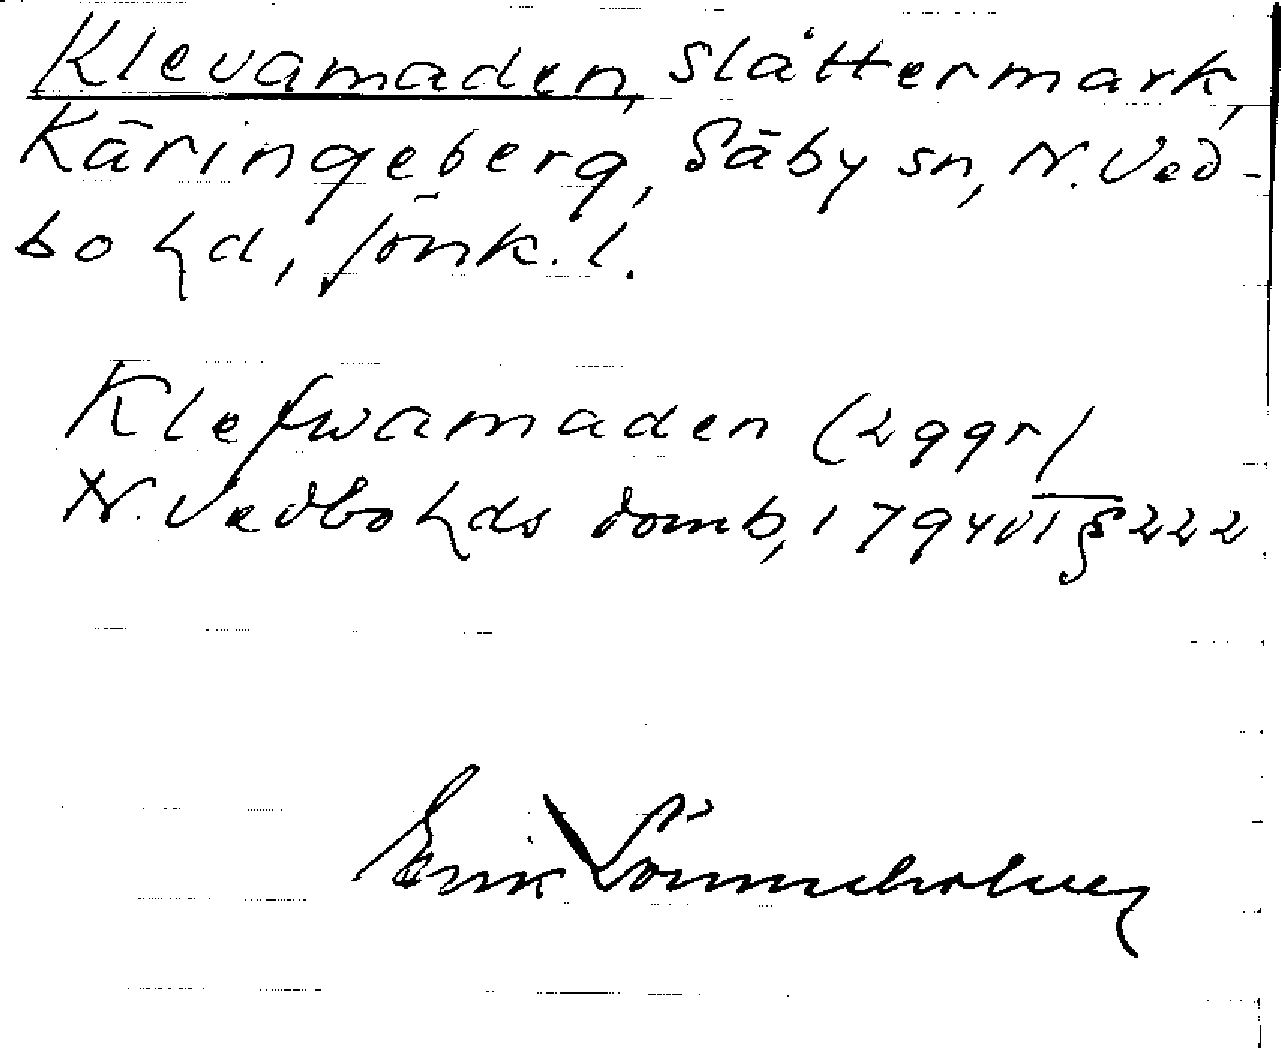 Klevamaden, slåttermark,
Käringeberg, Säby sn, N. Ved-
bo hd, Jönk. l.
Klefwamaden (2 ggr)
N. Vedbo hds domb, 1794 VI § 222
Erik